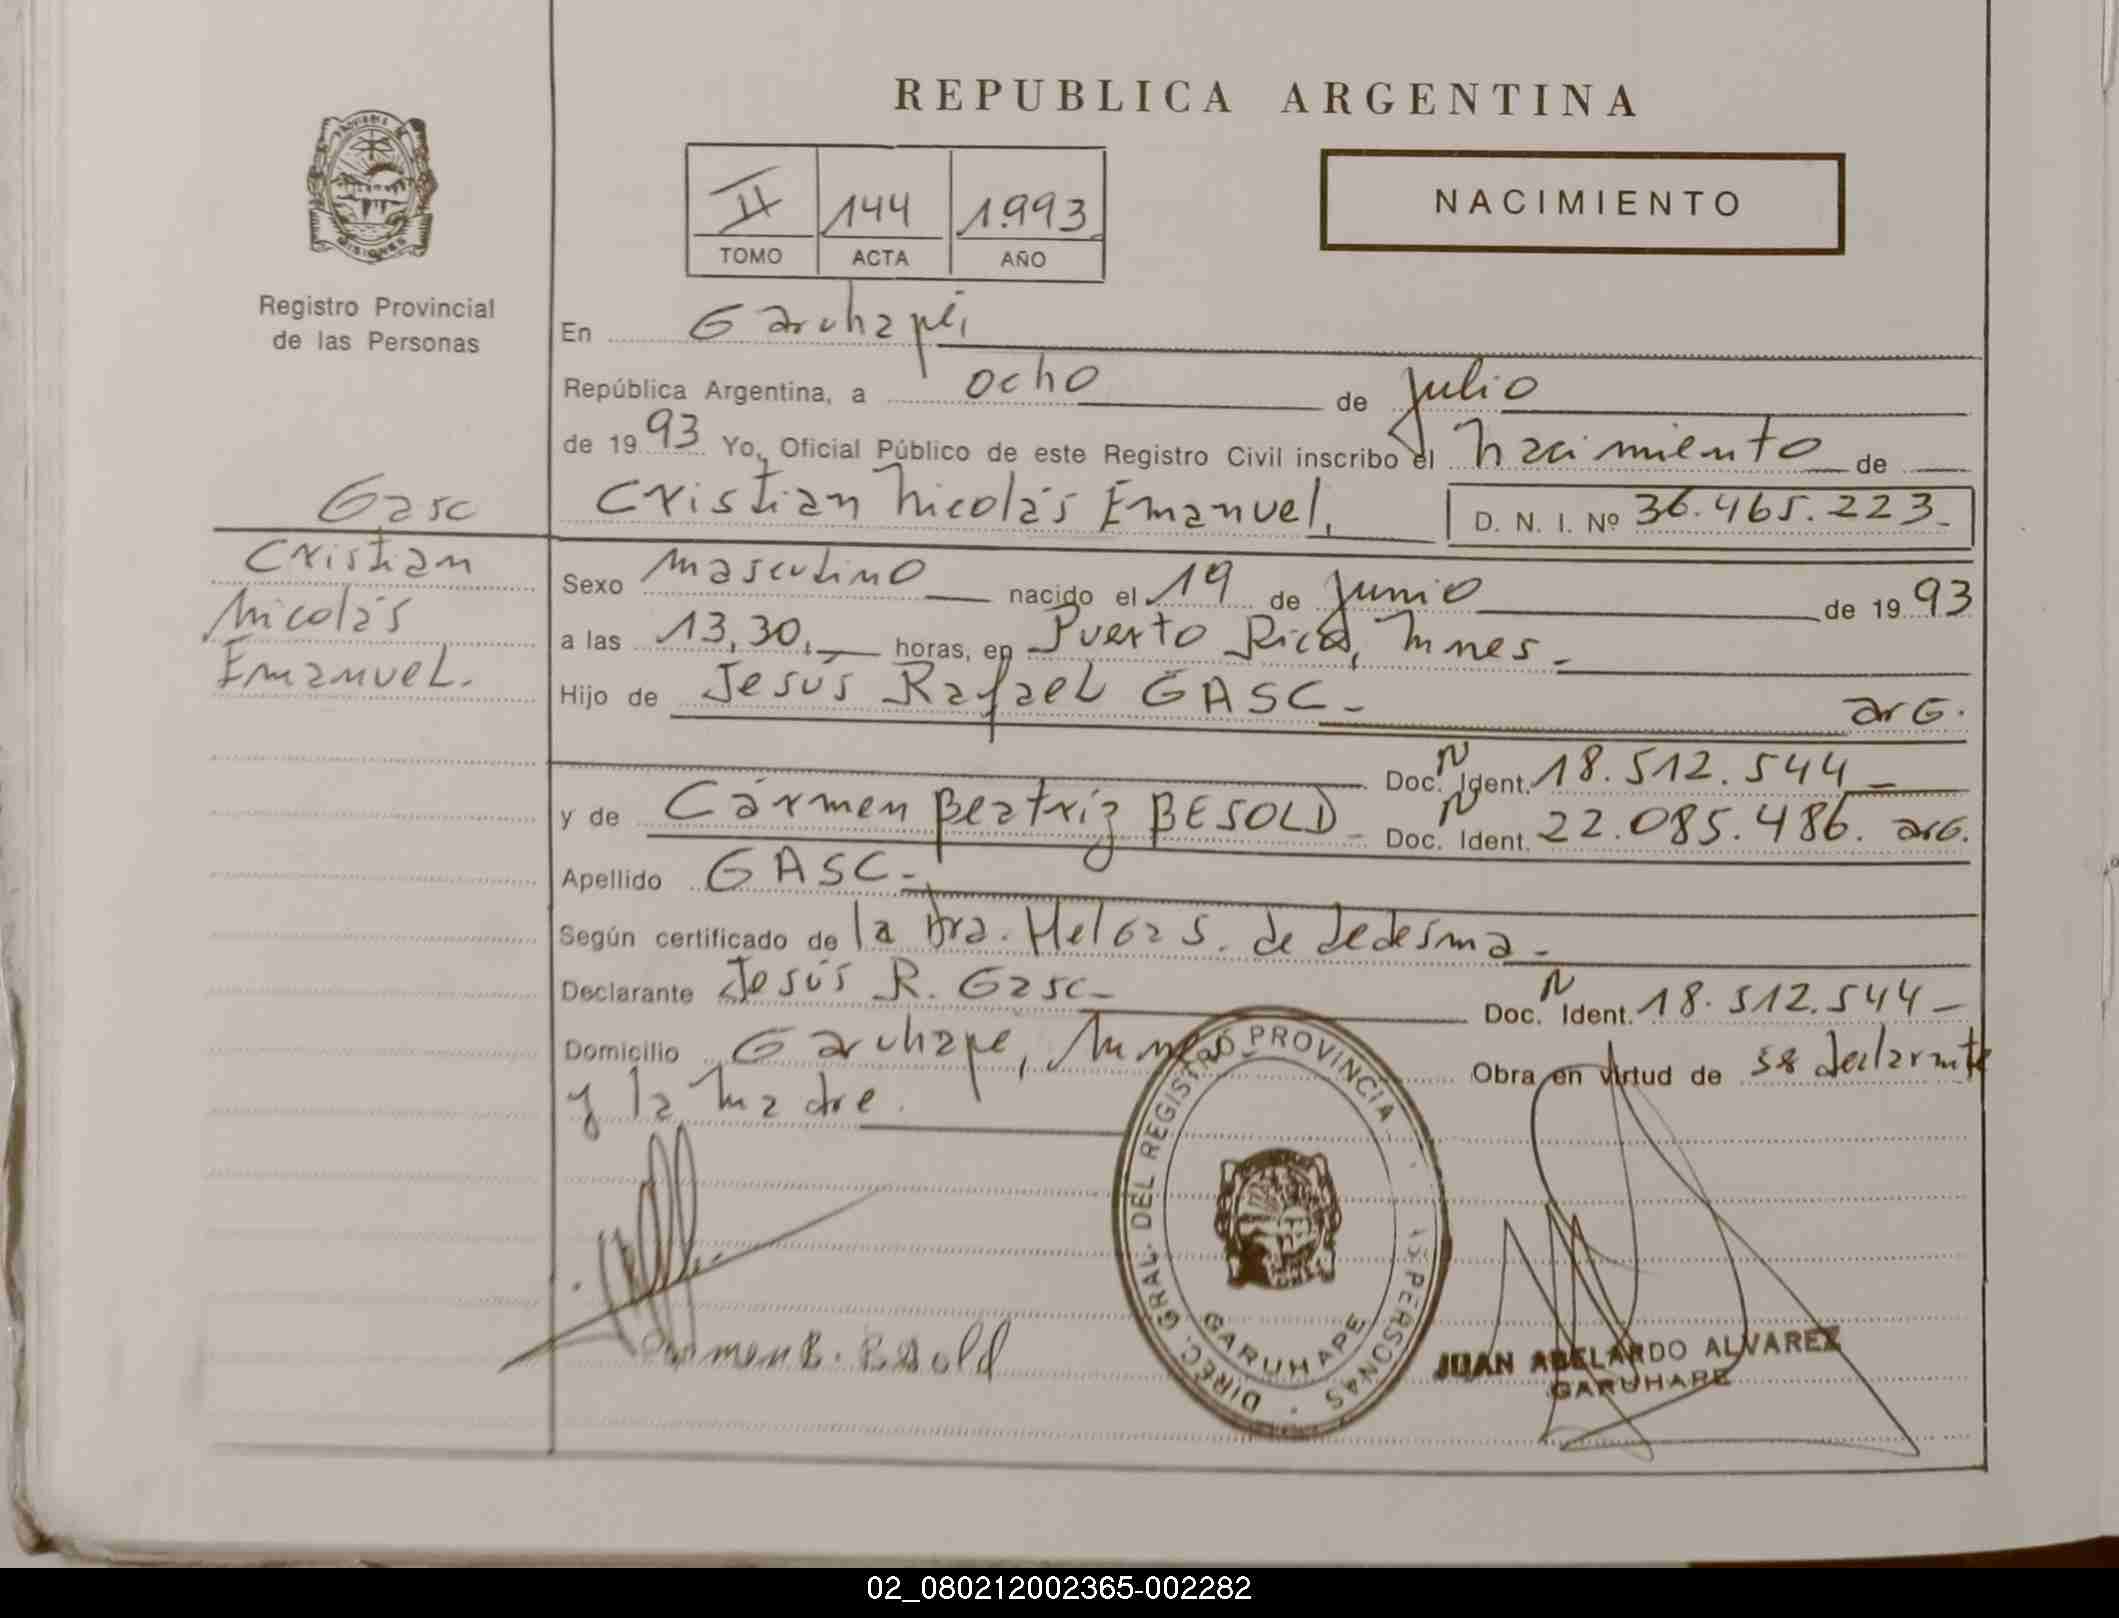 REPUBLICA ARGENTINA
II 144 1.993
TOMO ACTA AÑO
NACIMIENTO
PROVINCIA DE
MISIONES
Registro Provincial
de las Personas
Gasc
Cristian
Nicolás
Emanuel.
En Garuhapé,
República Argentina, a ocho de julio
de 1993 Yo, Oficial Público de este Registro Civil inscribo el nacimiento de
Cristian Nicolás Emanuel, D. N. I. Nº 36.465.223-
Sexo masculino nacido el 19 de junio de 1993
a las 13,30, horas, en Puerto Rico, Mnes-
Hijo de Jesús Rafael GASC- arG.
Doc. N Ident. 18.512.544-
y de Cármen Beatriz BESOLD- Doc. N Ident. 22.085.486. arG.
Apellido GASC-
Según certificado de la Dra. S. de Ledesma-
Declarante Jesús R. Gasc- Doc. N Ident. 18.512.544-
Domicilio Garuhape, Mnes- Obra en virtud de ser declarante
y la madre.
DIREC. GRAL. DEL REGISTRO PROVINCIAL PERSONAS
GARUHAPE
Carmen B. Besold
JUAN ABELARDO ALVAREZ
GARUHAPE
02_080212002365-002282